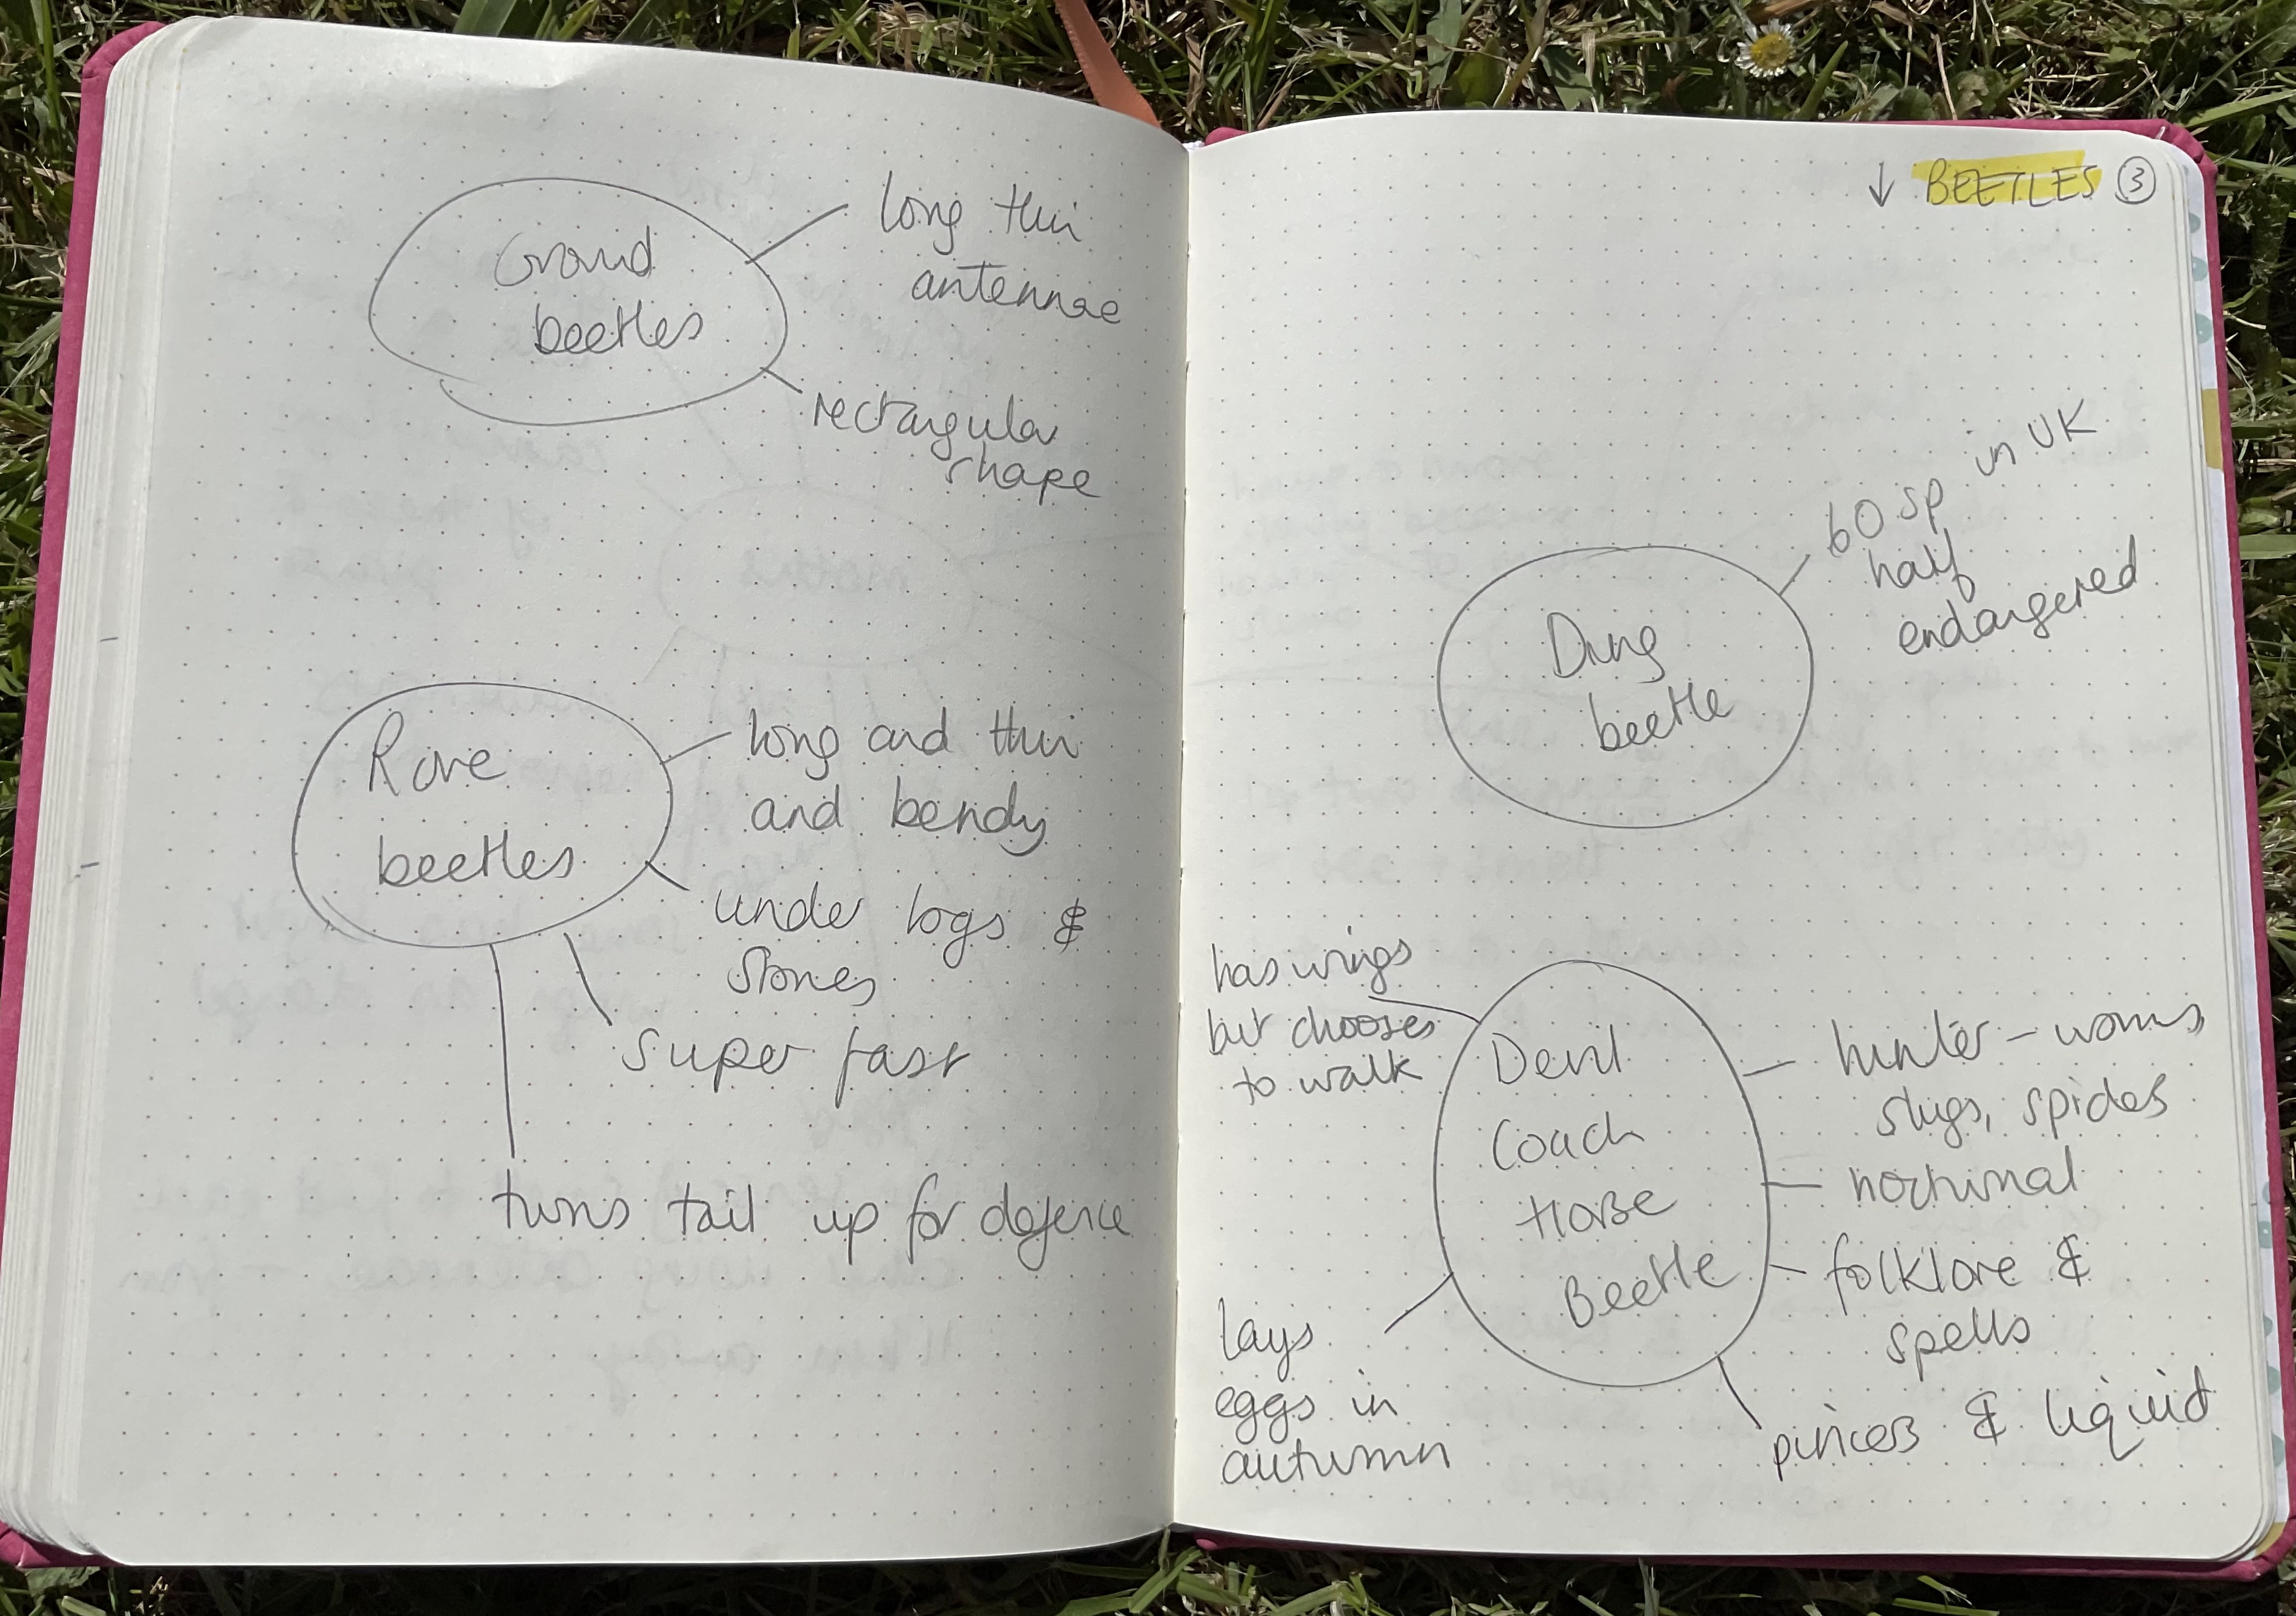 Ground
beetles
long thin
antennae
rectangular
shape
Rove
beetles
long and thin
and bendy
under logs &
stones
super fast
turns tail up for defence
↓ BEETLES 3
Dung
beetle
60 sp in UK
half
endangered
Devil
Coach
Horse
Beetle
has wings
but chooses
to walk
hunter - worms
slugs, spiders
nocturnal
folklore &
spells
pincers & liquid
lays
eggs in
autumn